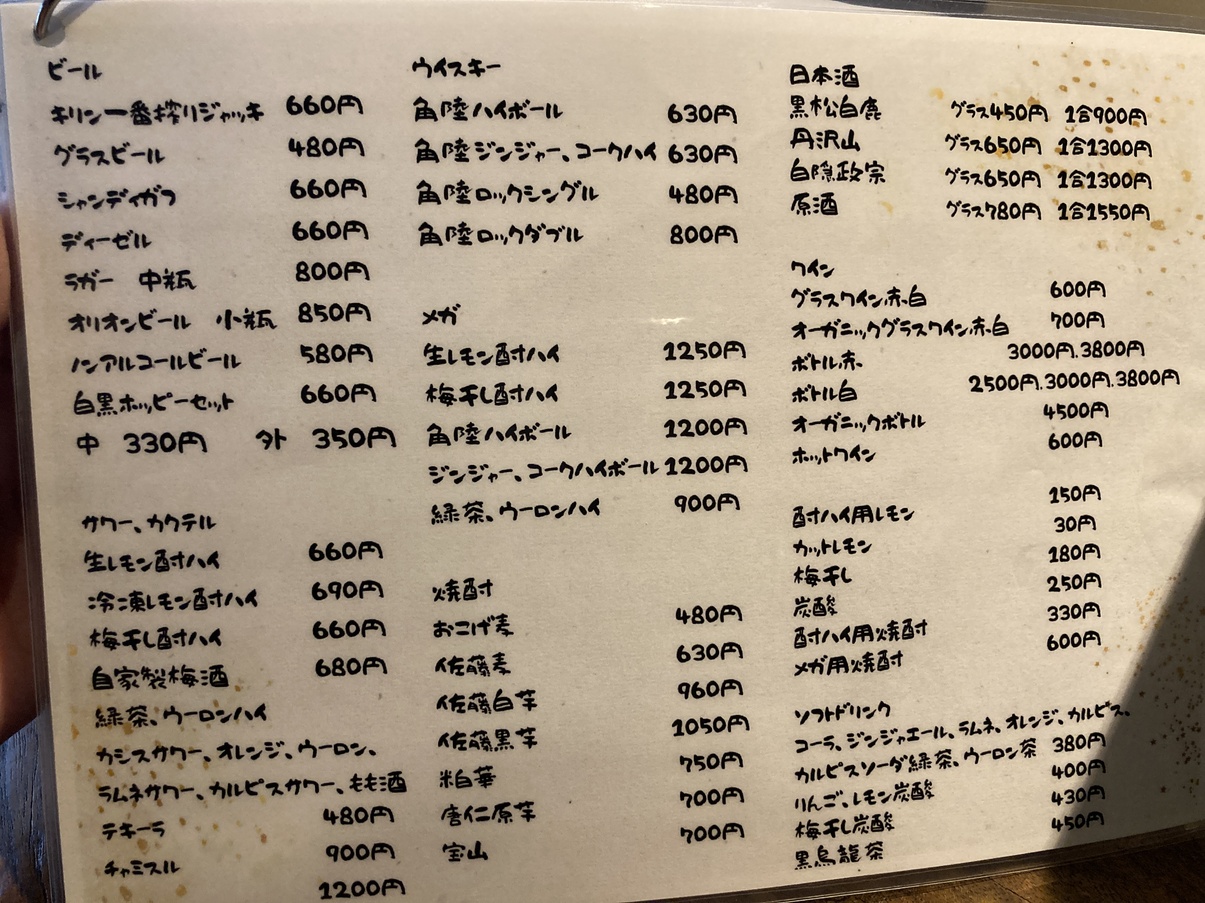 ビール
キリン一番搾りジャッキ 660円
グラスビール 480円
シャンディガフ 660円
ディーゼル 660円
ラガー 中瓶 800円
オリオンビール 小瓶 850円
ノンアルコールビール 580円
白黒ホッピーセット 660円
中 330円 外 350円
サワー、カクテル
生レモン酎ハイ 660円
冷凍レモン酎ハイ 690円
梅干し酎ハイ 660円
自家製梅酒 680円
緑茶、ウーロンハイ
カシスサワー、オレンジ、ウーロン、
ラムネサワー、カルピスサワー、もも酒
480円
テキーラ
900円
チャミスル
1200円
ウイスキー
角陸ハイボール 630円
角陸ジンジャー、コークハイ 630円
角陸ロックシングル 480円
角陸ロックダブル 800円
メガ
生レモン酎ハイ 1250円
梅干し酎ハイ 1250円
角陸ハイボール 1200円
ジンジャー、コークハイボール 1200円
緑茶、ウーロンハイ 900円
焼酎
おこげ麦 480円
佐藤麦 630円
佐藤白芋 960円
佐藤黒芋 1050円
米白華 750円
唐仁原芋 700円
宝山 700円
日本酒
黒松白鹿 グラス450円 1合900円
丹沢山 グラス650円 1合1300円
白隠政宗 グラス650円 1合1300円
原酒 グラス780円 1合1550円
ワイン
グラスワイン赤.白 600円
オーガニックグラスワイン赤.白 700円
ボトル赤. 3000円.3800円
ボトル白 2500円.3000円.3800円
オーガニックボトル 4500円
ホットワイン 600円
酎ハイ用レモン 150円
カットレモン 30円
梅干し 180円
炭酸 250円
酎ハイ用焼酎 330円
メガ用焼酎 600円
ソフトドリンク
コーラ、ジンジャエール、ラムネ、オレンジ、カルピス、
カルピスソーダ緑茶、ウーロン茶 380円
りんご、レモン炭酸 400円
梅干し炭酸 430円
黒烏龍茶 450円